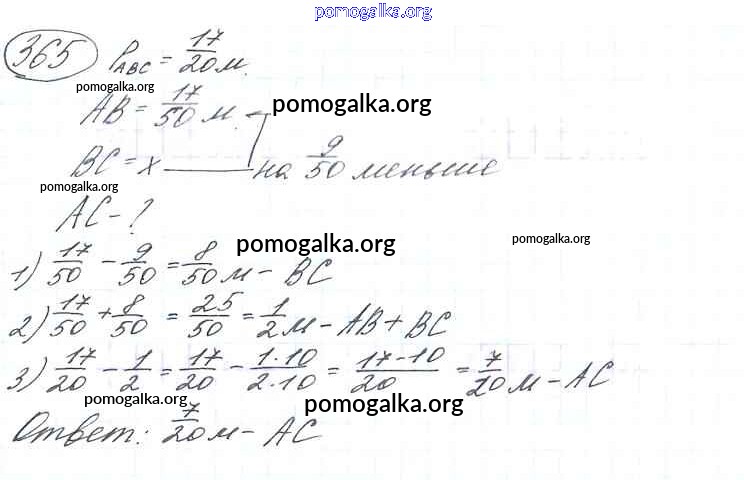 pomogalka.org
365 P_ABC = 17/20 м.
pomogalka.org
AB = 17/50 м. pomogalka.org
BC = x на 9/50 меньше
pomogalka.org
AC - ?
pomogalka.org pomogalka.org
1) 17/50 - 9/50 = 8/50 м - BC
2) 17/50 + 8/50 = 25/50 = 1/2 м - AB + BC
3) 17/20 - 1/2 = 17/20 - 1·10/2·10 = 17-10/20 = 7/20 м - AC
pomogalka.org pomogalka.org
Ответ: 7/20 м - AC